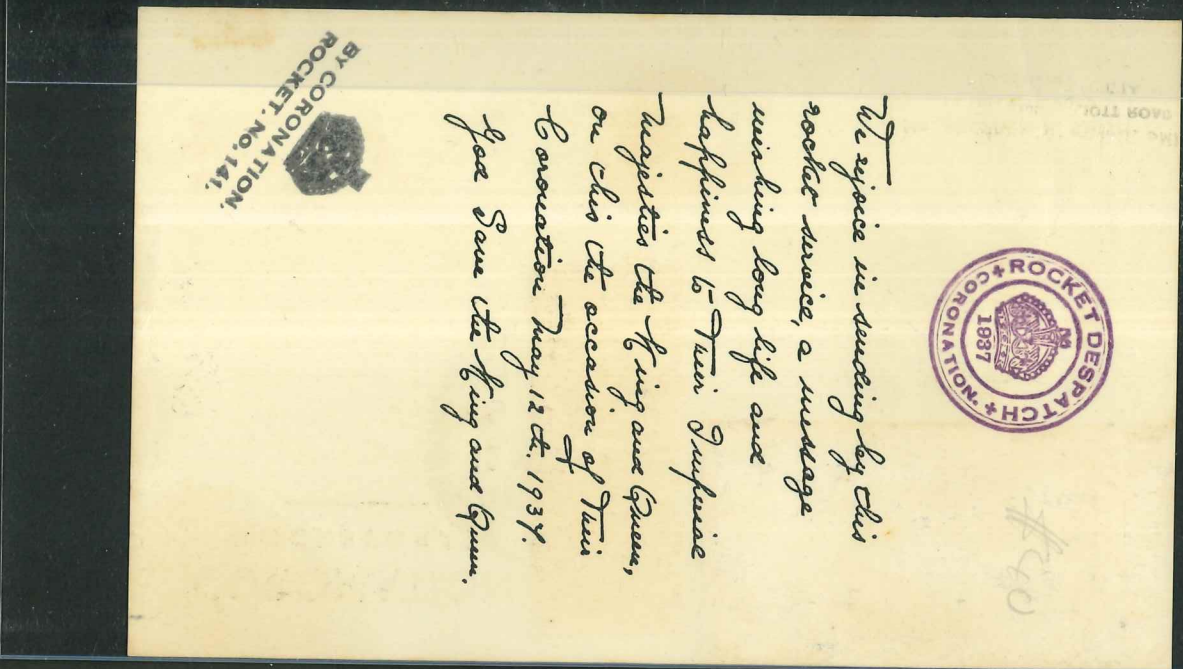 ROCKET DESPATCH + CORONATION +
1937
We rejoice in sending by this
rocket service, a message
wishing long life and
happiness to Their Imperial
Majesties the King and Queen,
on this the occasion of Their
Coronation May 12th. 1937.
God Save the King and Queen.
BY CORONATION.
ROCKET. NO. 141.